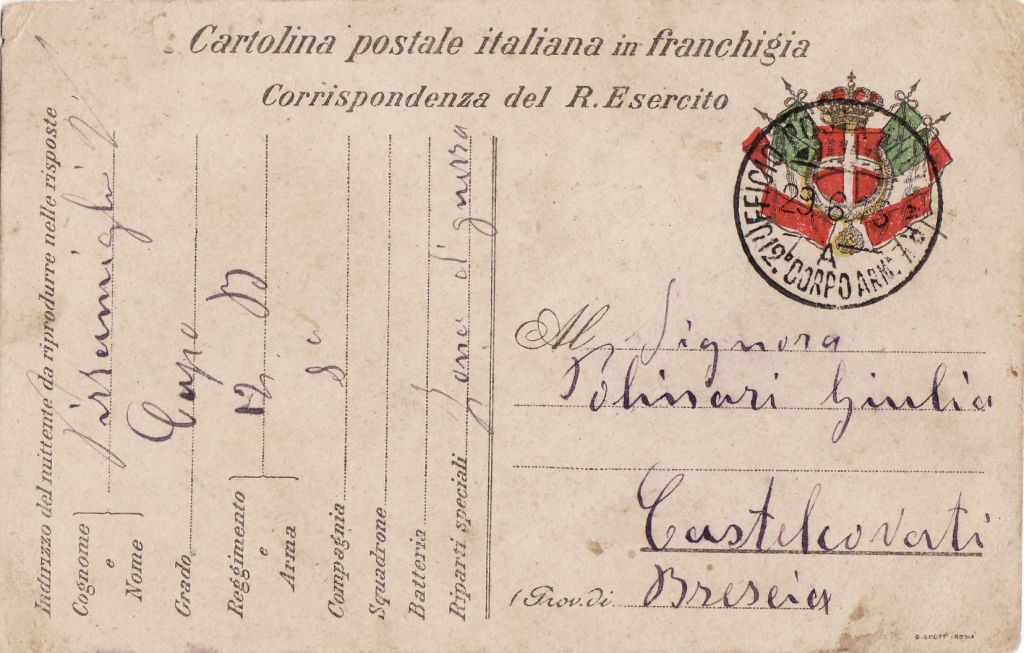 Cartolina postale italiana in franchigia
Corrispondenza del R. Esercito
Indirizzo del mittente da riprodurre nelle risposte
Cognome e Nome
Grado Capo
Reggimento e Arma 12. B
Compagnia 8a
Squadrone
Batteria
Riparti speciali Zona di guerra
UFFICIO POSTA
29. 6.
A
12º CORPO ARM.
Al Signora
Giulia
Castelcovati
(Prov. di Brescia